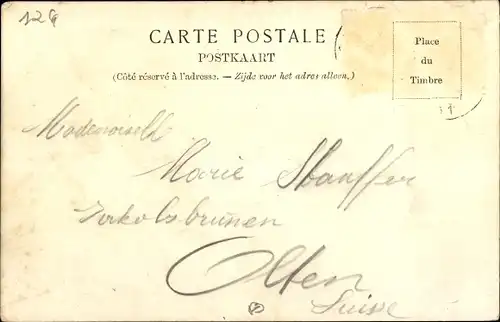 126
CARTE POSTALE
POSTKAART
(Côté réservé à l'adresse. — Zijde voor het adres alleen.)
Place
du
Timbre
Mademoiselle
Marie Stauffer
Olten
Suisse